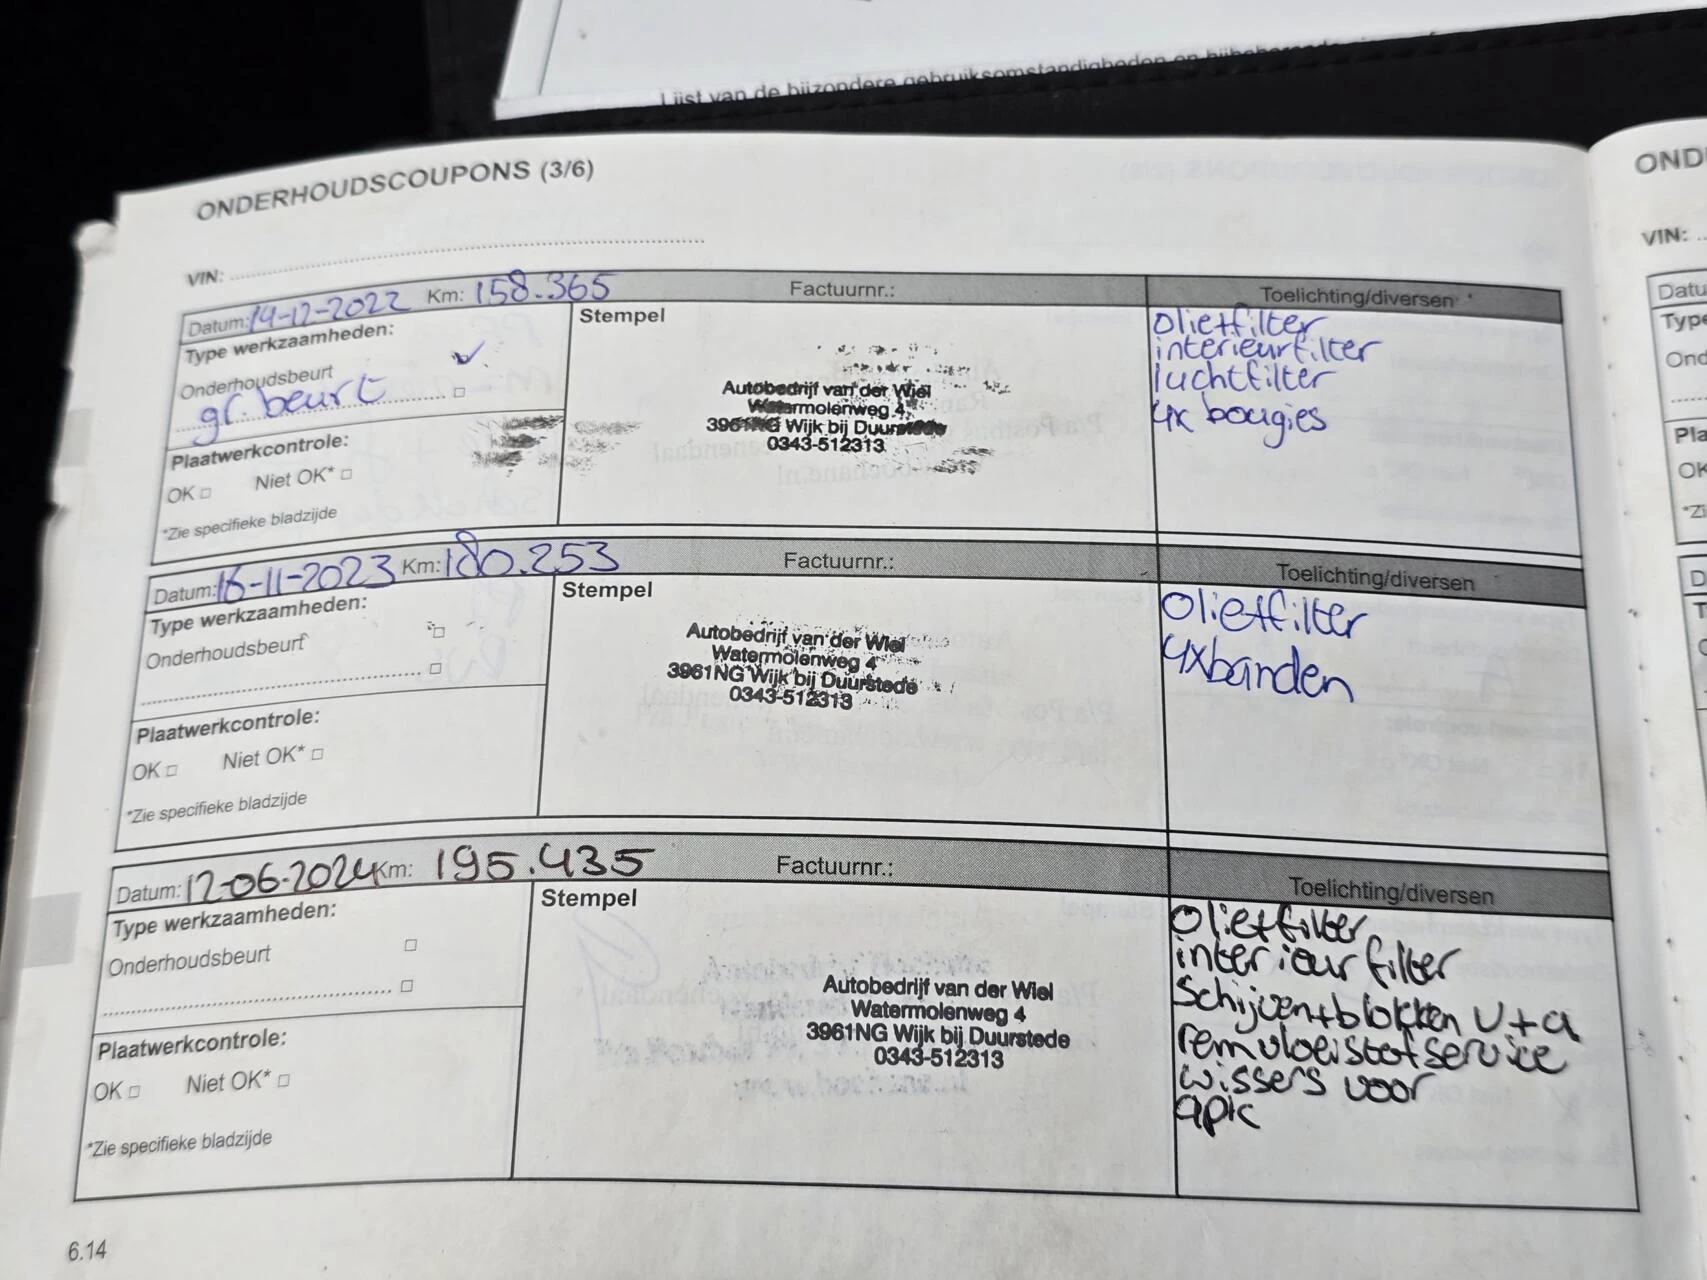 Lijst van de bijzondere gebruiksomstandigheden en bijbehorende
ONDERHOUDSCOUPONS (3/6)
VIN:
Datum: 14-12-2022 Km: 158.365 Factuurnr.: Toelichting/diversen
Type werkzaamheden:
Onderhoudsbeurt ✓
gr. beurt
Plaatwerkcontrole:
OK □ Niet OK* □
*Zie specifieke bladzijde
Stempel
Autobedrijf van der Wiel
Watermolenweg 4
3961NG Wijk bij Duurstede
0343-512313
olie+filter
interieurfilter
luchtfilter
4x bougies
Datum: 16-11-2023 Km: 180.253 Factuurnr.: Toelichting/diversen
Type werkzaamheden:
Onderhoudsbeurt □
□
Plaatwerkcontrole:
OK □ Niet OK* □
*Zie specifieke bladzijde
Stempel
Autobedrijf van der Wiel
Watermolenweg 4
3961NG Wijk bij Duurstede
0343-512313
olie+filter
4xbanden
Datum: 12-06-2024 Km: 195.435 Factuurnr.: Toelichting/diversen
Type werkzaamheden:
Onderhoudsbeurt □
□
Plaatwerkcontrole:
OK □ Niet OK* □
*Zie specifieke bladzijde
Stempel
Autobedrijf van der Wiel
Watermolenweg 4
3961NG Wijk bij Duurstede
0343-512313
olie+filter
interieur filter
schijven+blokken v+a
remvloeistofservice
wissers voor
apk
6.14
OND
VIN:
Datu
Type
Ond
Pla
OK
*Zi
D